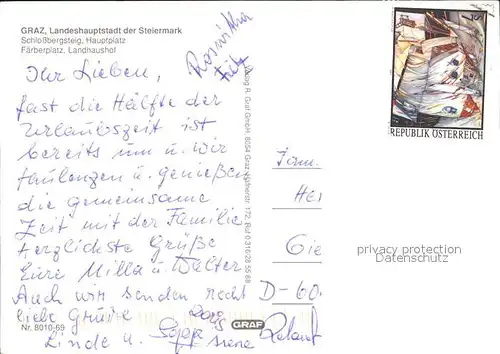 GRAZ, Landeshauptstadt der Steiermark
Schloßbergsteig, Hauptplatz
Färberplatz, Landhaushof
Roswitha
Fritz
Ihr Lieben,
fast die Hälfte der
Urlaubszeit ist
bereits um u. wir
faulenzen u. genießen
die gemeinsame
Zeit mit der Familie
Herzlichste Grüße
Eure Milla u. Walter
Auch wir senden recht
liebe Grüße
Linde u. Sepp
Nr. 8010-69
Verlag R. Graf GmbH, 8054 Graz, 172, Ruf 0 316/28 55 68
GRAF
REPUBLIK ÖSTERREICH
Fam.
HE
Gie
D-60
privacy protection
Datenschutz